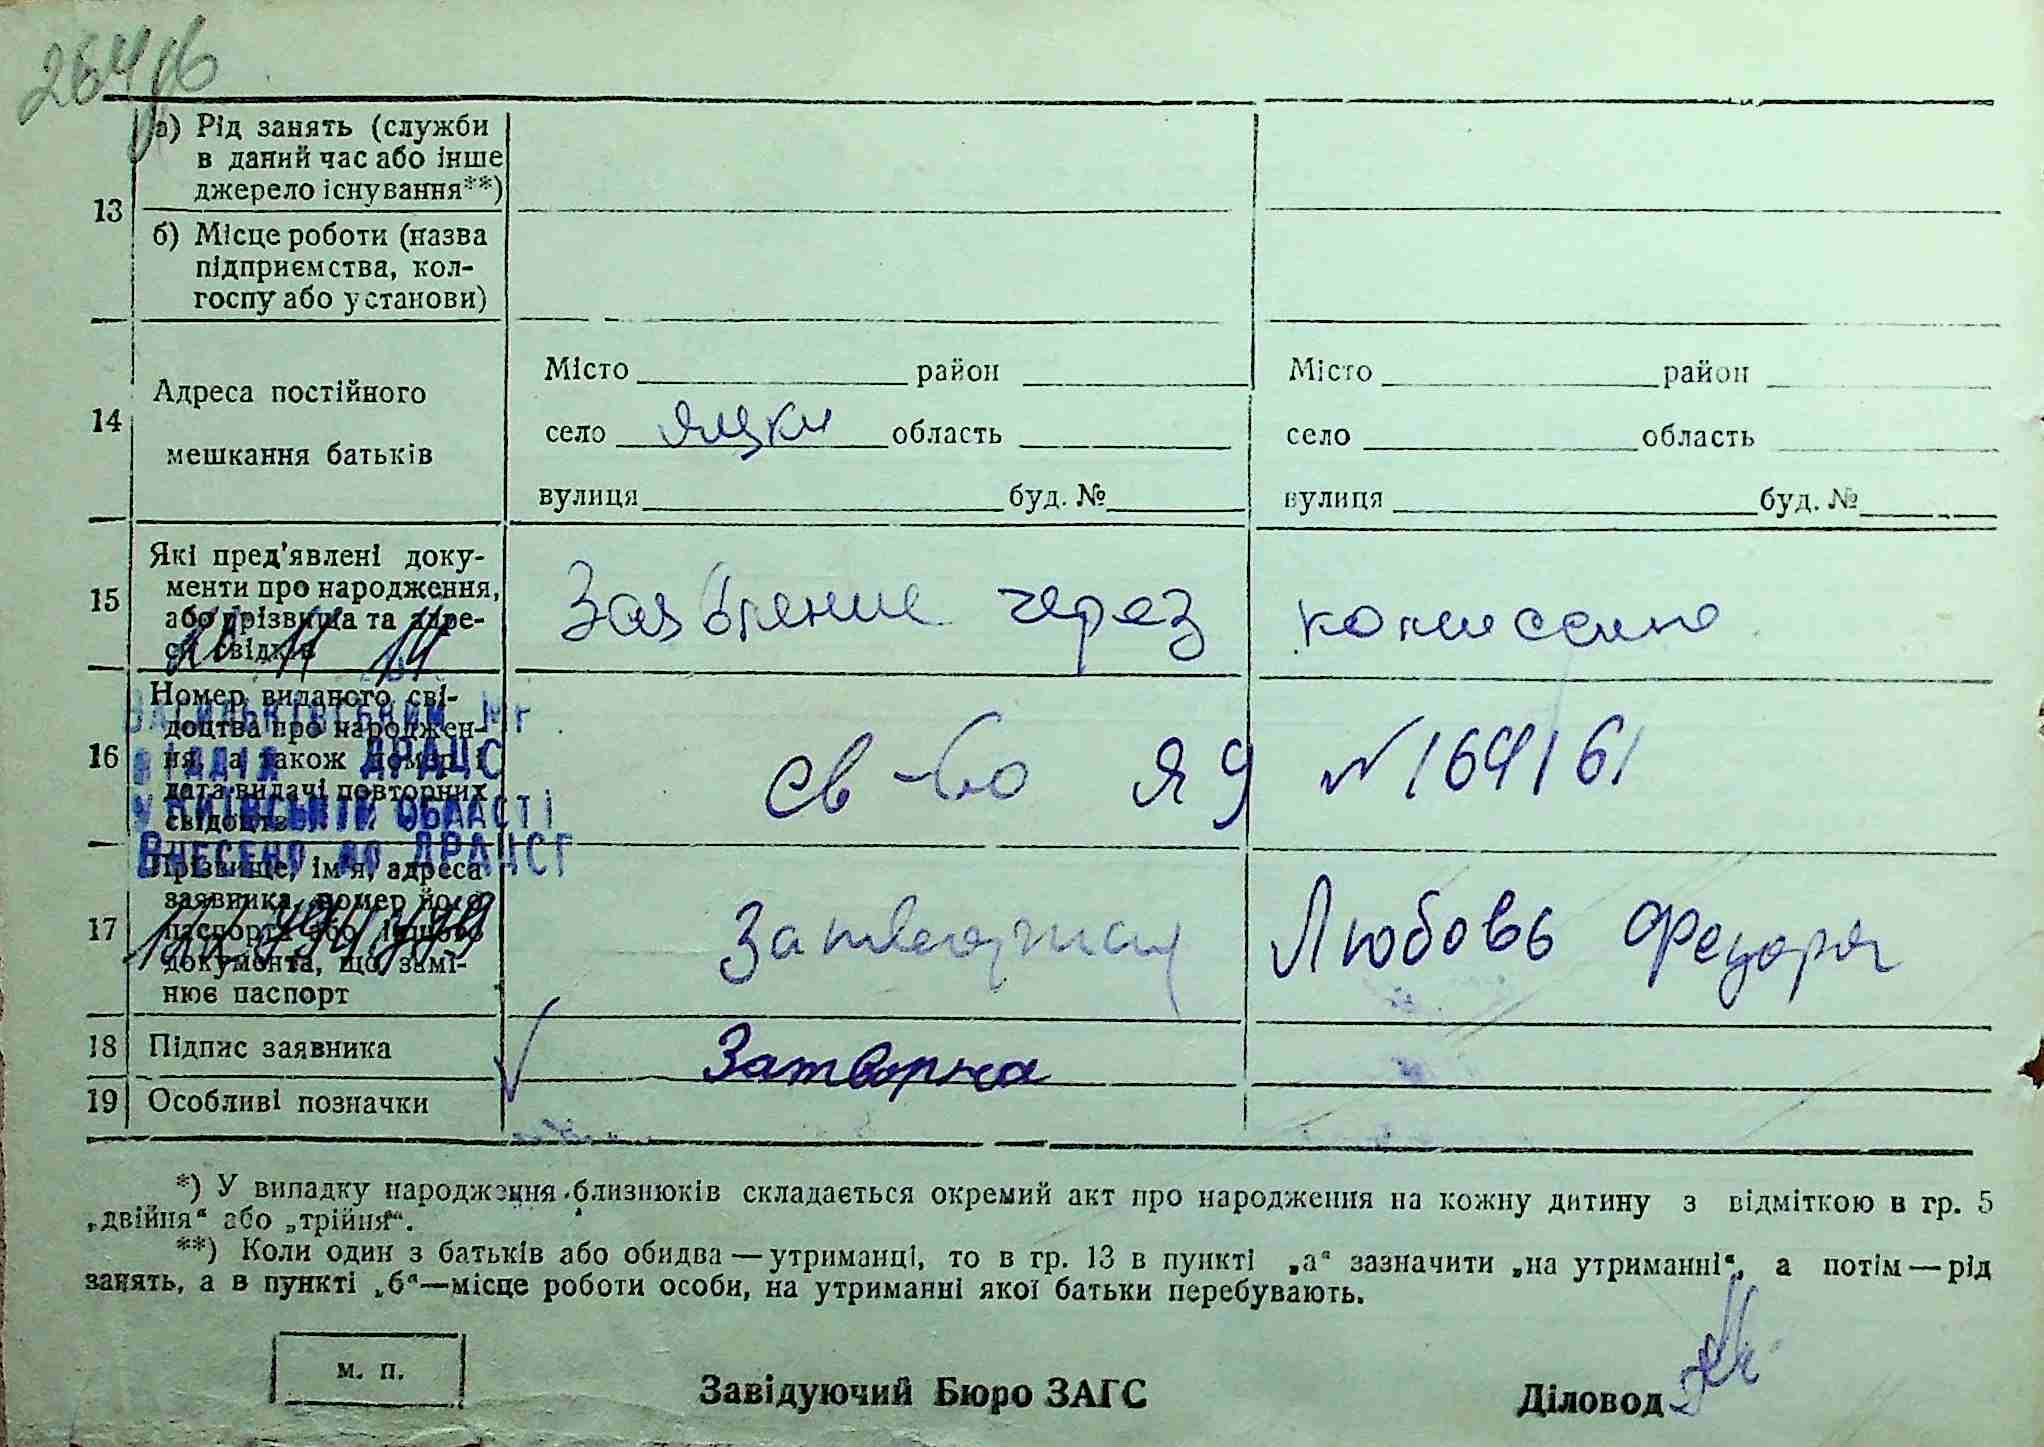 264
13
а) Рід занять (служби
в даний час або інше
джерело існування**)
б) Місце роботи (назва
підприємства, кол-
госпу або установи)
14
Адреса постійного
мешкання батьків
Місто район
село Яцки область
вулиця буд. №
Місто район
село область
вулиця буд. №
15
Які пред'явлені доку-
менти про народження,
або прізвища та адре-
си свідків
Заявление через комиссию
10 11 14
16
Номер виданого сві-
доцтва про народжен-
ня, а також номер і
дата видачі повторних
свідоцтв
св-во Я 9 № 164161
ВАСИЛЬКІВСЬКИЙ МР
ВІДДІЛ ДРАЦС
У КИЇВСЬКІЙ ОБЛАСТІ
ВНЕСЕНО ДО ДРАЦСГ
17
Прізвище, ім'я, адреса
заявника, номер його
паспорта або іншого
документа, що замі-
нює паспорт
Затворная Любовь
18
Підпис заявника
Затворна
19
Особливі позначки
*) У випадку народження близнюків складається окремий акт про народження на кожну дитину з відміткою в гр. 5
„двійня“ або „трійня“.
**) Коли один з батьків або обидва — утриманці, то в гр. 13 в пункті „а“ зазначити „на утриманні“, а потім — рід
занять, а в пункті „б“—місце роботи особи, на утриманні якої батьки перебувають.
м. п.
Завідуючий Бюро ЗАГС
Діловод